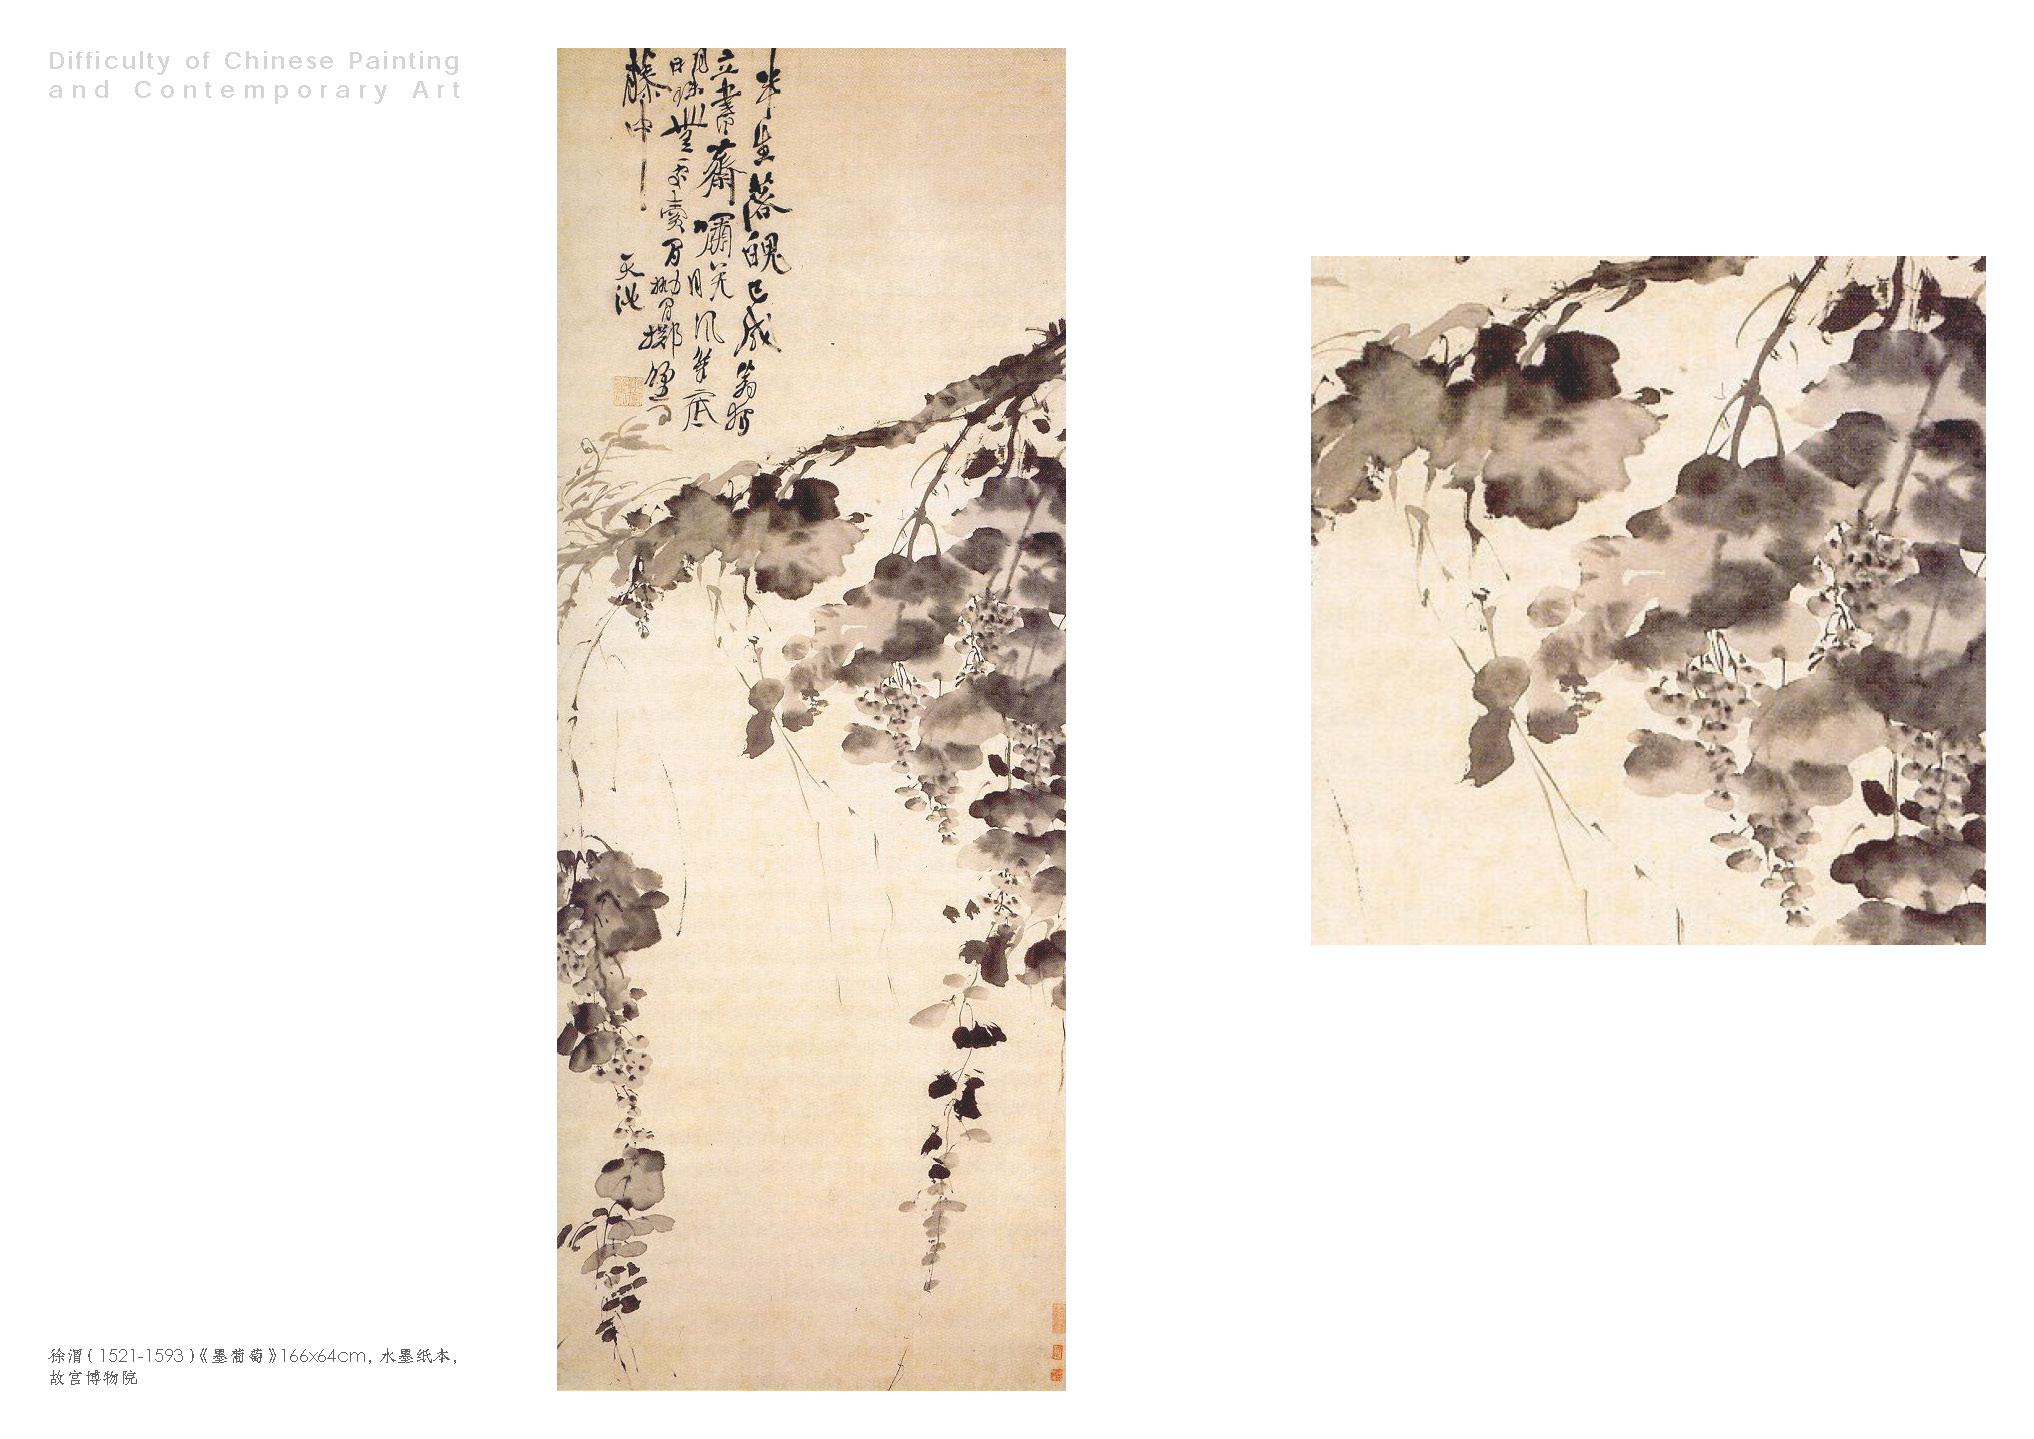 Difficulty of Chinese Painting
and Contemporary Art
半生落魄已成翁獨
立書齋嘯晚風筆底
明珠無處賣閒拋閒擲野
藤中
天池
徐渭(1521-1593)《墨葡萄》166x64cm, 水墨纸本,
故宫博物院